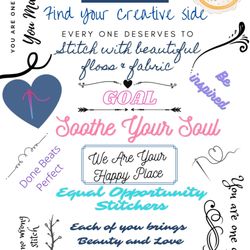 Find Your Creative side
YOU ARE ONE
You Ma
EVERY ONE DESERVES TO
Stitch with beautiful
floss & fabric
Be
inspired
GOAL
Soothe Your Soul
We Are Your
Happy Place
Done Beats
Perfect
Equal Opportunity
Stitchers
You are one
stitch
Each of you brings
Beauty and Love